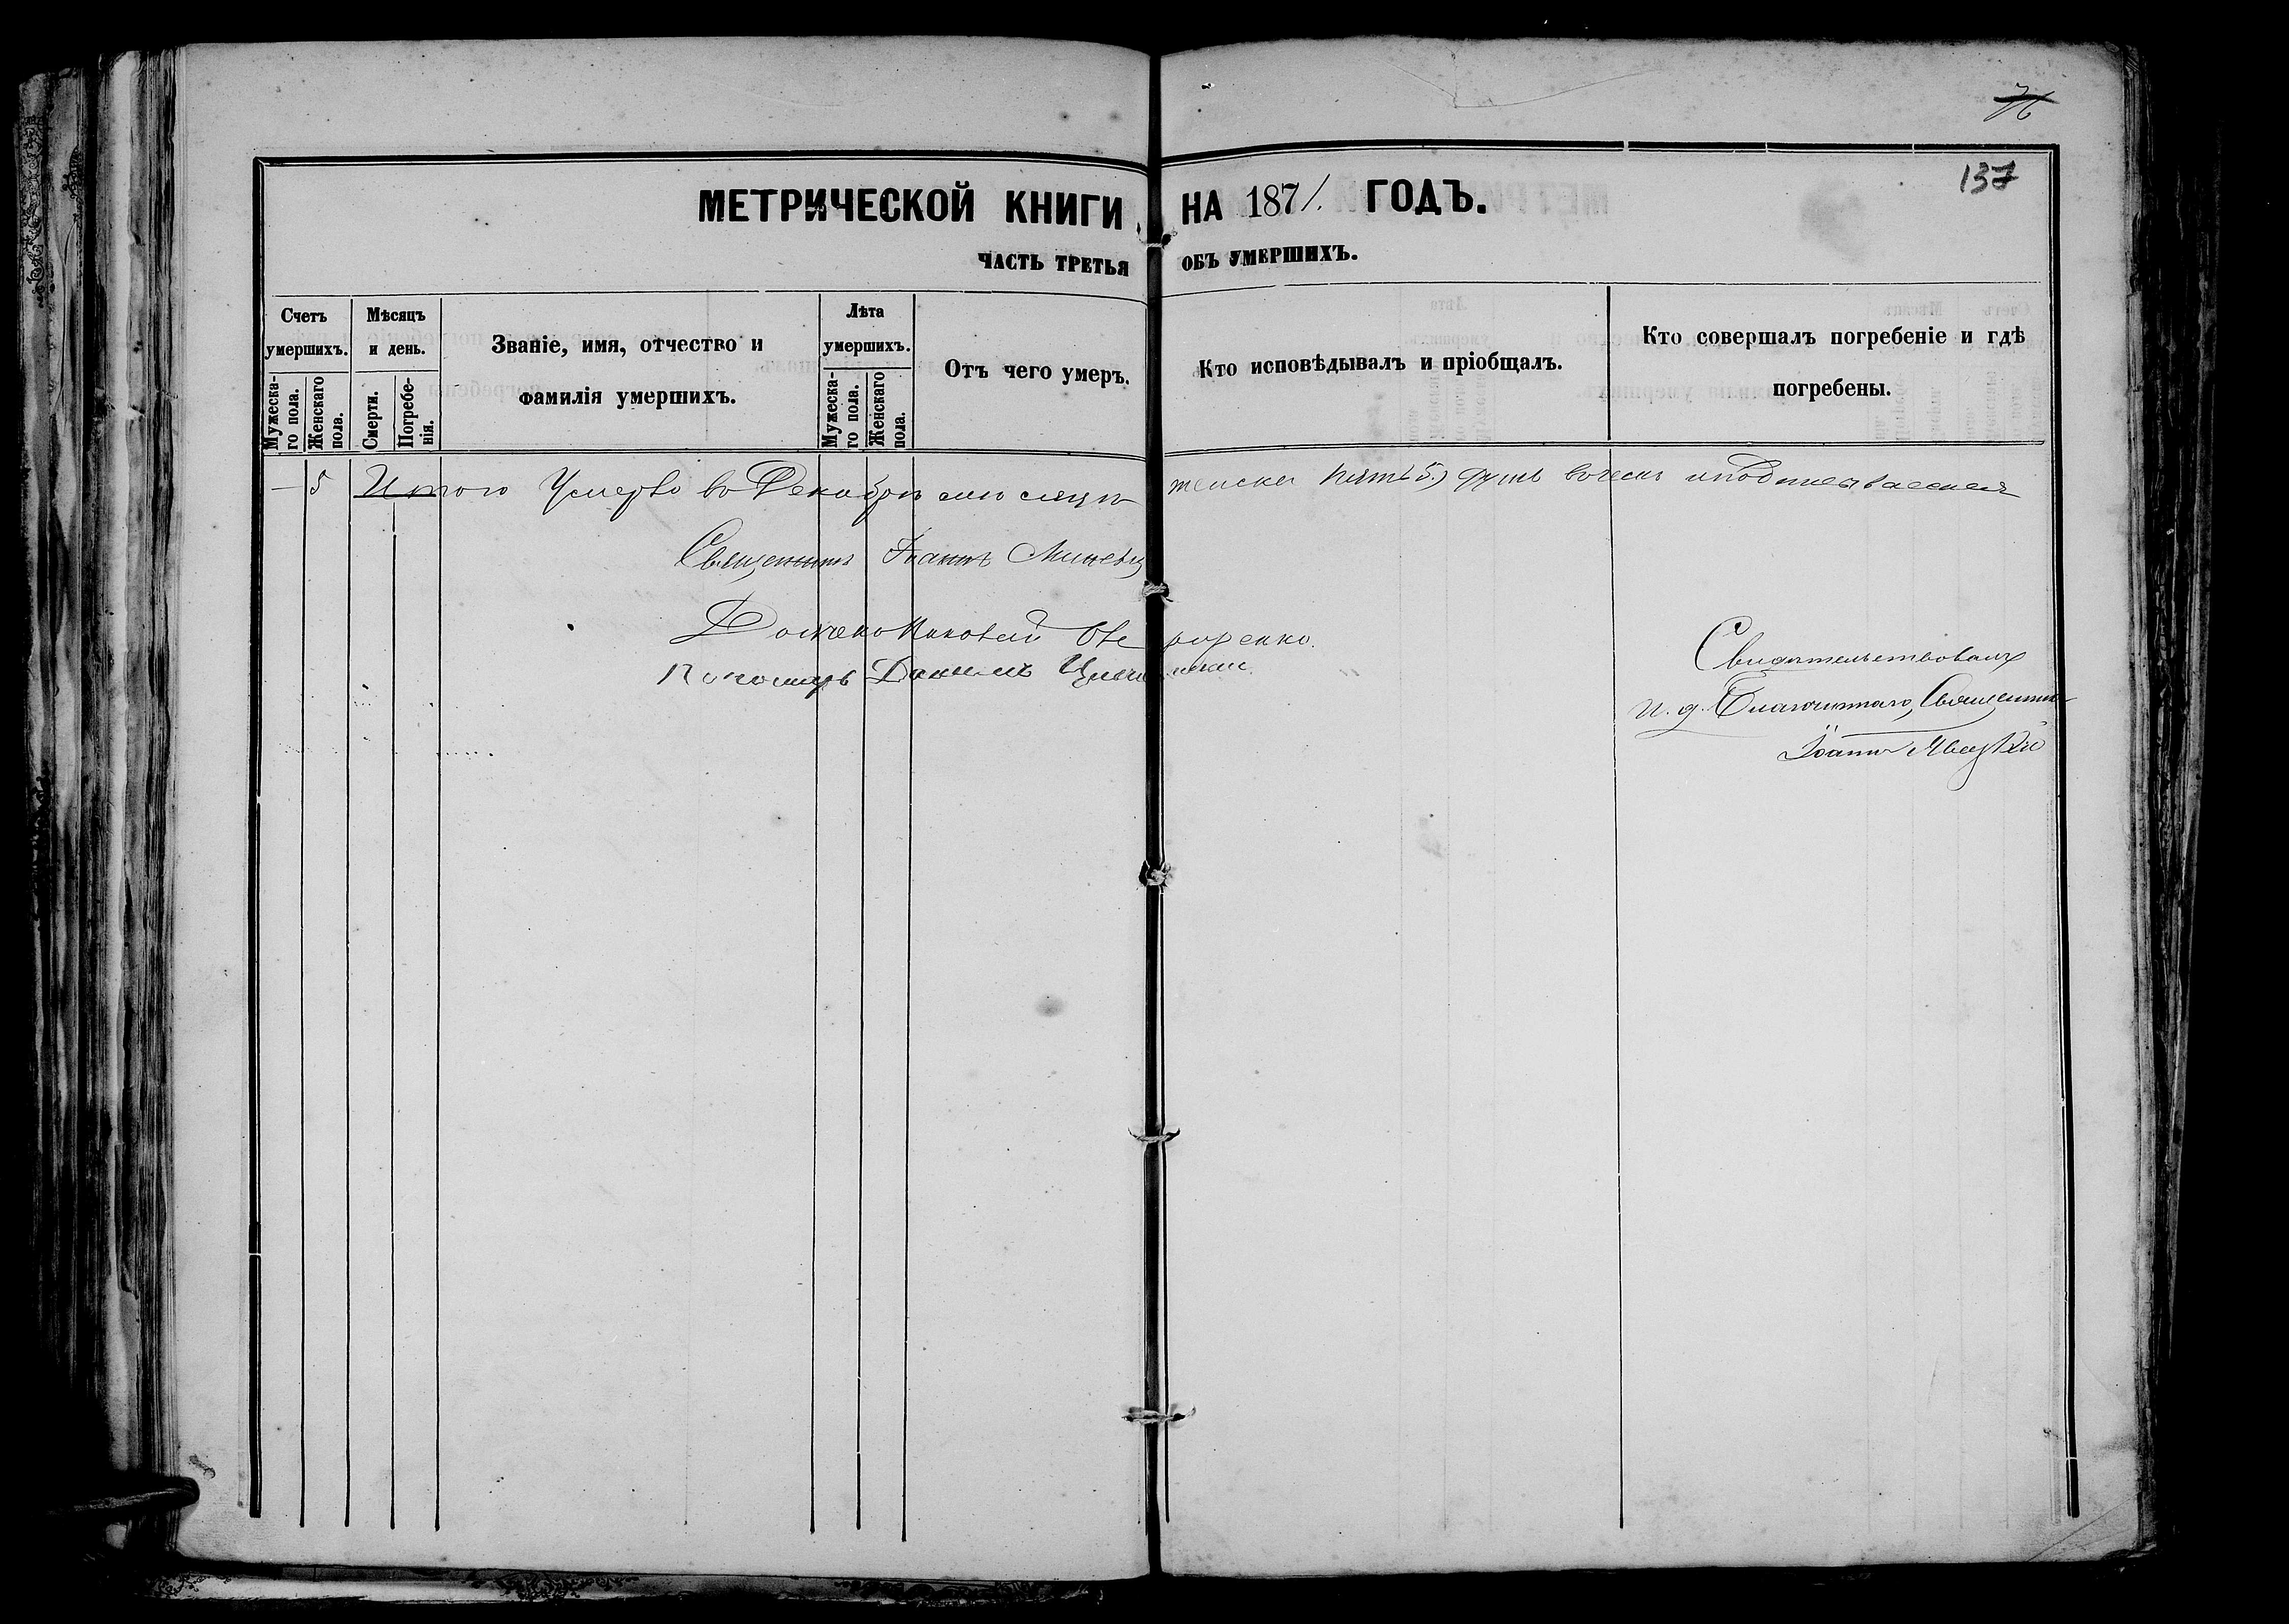 76
137
МЕТРИЧЕСКОЙ КНИГИ НА 1871. ГОДЪ.
ЧАСТЬ ТРЕТЬЯ ОБЪ УМЕРШИХЪ.
Счетъ умершихъ.
Мужеска-го пола.
Женскаго пола.
Мѣсяцъ и день.
Смерти.
Погребе-нія.
Званіе, имя, отчество и фамилія умершихъ.
Лѣта умершихъ.
Мужеска-го пола.
Женскаго пола.
Отъ чего умеръ.
Кто исповѣдывалъ и пріобщалъ.
Кто совершалъ погребеніе и гдѣ погребены.
— 5 Итого Умерло во Декабрѣ мѣсяцѣ женска пять 5.) душъ вочемъ и подписываемся
Священникъ Іоаннъ
Пономарь Даниилъ
Свидѣтельствовалъ
и. д. Благочиннаго, Священникъ
Іоаннъ